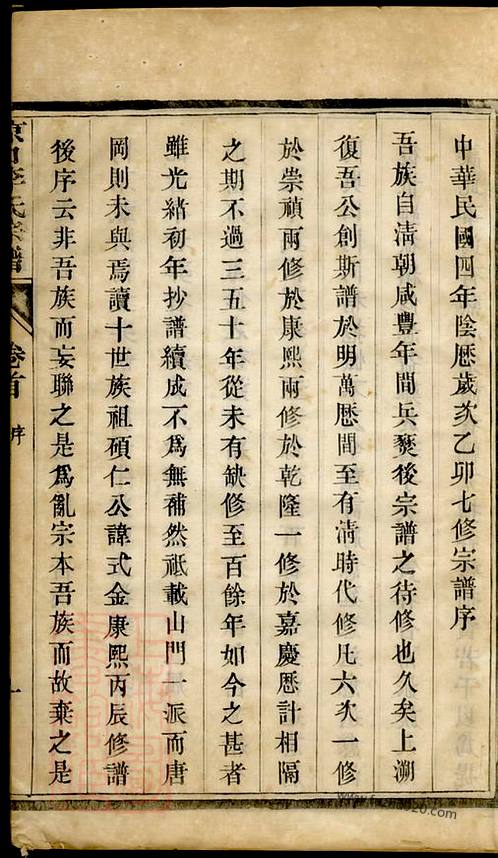 中華民國四年陰歷歲次乙卯七修宗譜序
吾族自淸朝咸豐年間兵燹後宗譜之待修也久矣上溯
復吾公創斯譜於明萬歷間至有淸時代修凡六次一修
於崇禎兩修於康熙兩修於乾隆一修於嘉慶歷計相隔
之期不過三五十年從未有缺修至百餘年如今之甚者
雖光緒初年抄譜續成不爲無補然祇載山門一派而唐
岡則未與焉讀十世族祖碩仁公諱式金康熙丙辰修譜
後序云非吾族而妄聯之是爲亂宗本吾族而故棄之是
李氏宗譜
卷首 序
一